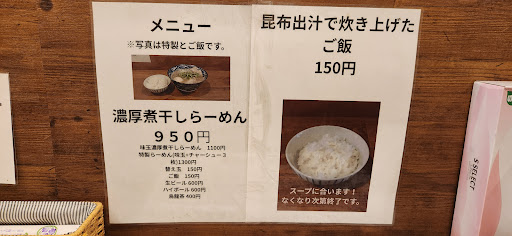 メニュー
※写真は特製とご飯です。
濃厚煮干しらーめん
950円
味玉濃厚煮干しらーめん 1100円
特製らーめん(味玉+チャーシュー3
枚)1300円
替え玉 150円
ご飯 150円
生ビール 600円
ハイボール 600円
烏龍茶 400円
昆布出汁で炊き上げた
ご飯
150円
スープに合います！
なくなり次第終了です。
S SELECT